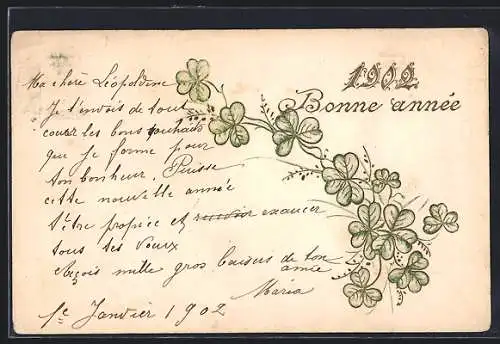 1902
Bonne année
Ma chère Léopoldine
Je t'envois de tout
coeur les bons souhaits
que je forme pour
ton bonheur, Puisse
cette nouvelle année
t'être propice et exaucer
tous tes voeux
Reçois mille gros baisers de ton
amie
Maria
1r Janvier 1902